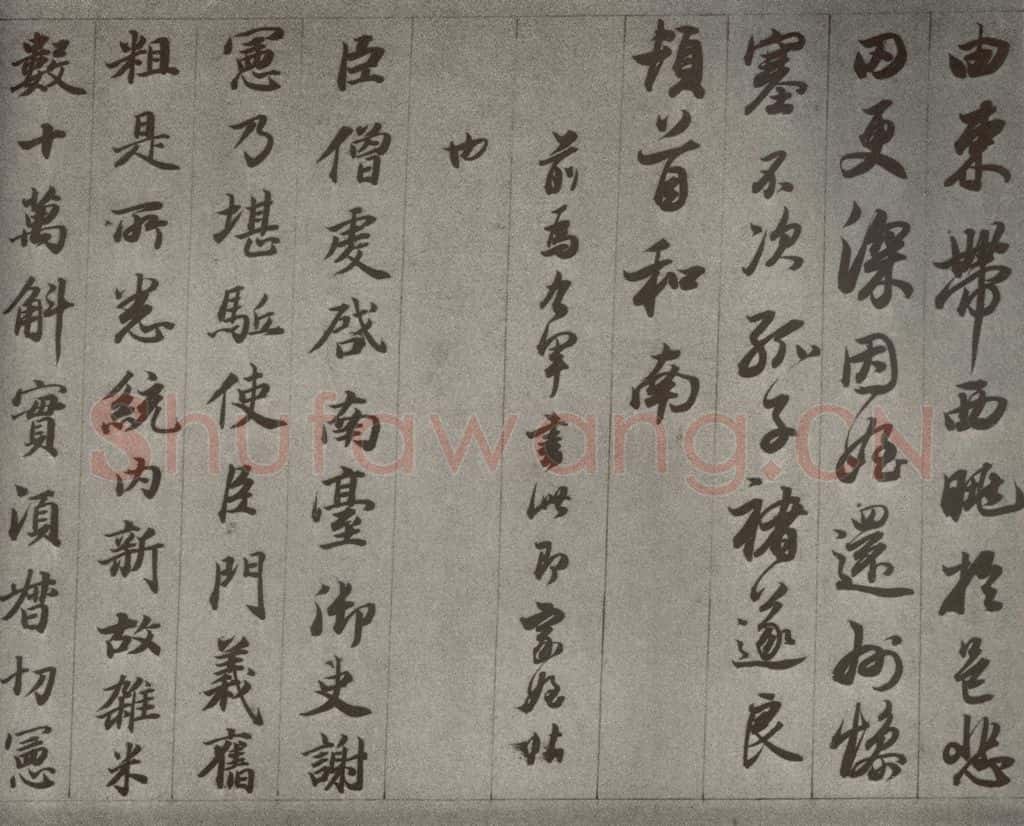 由束帶西眺於邑悲
罔更深因姪還州慘
塞不次孤子褚遂良
頓首和南
前爲書此即家姪帖
也
臣僧虔啓南臺御史謝
憲乃堪駈使臣門義舊
粗是所悉統內新故雜米
數十萬斛實須督切憲
Shufawang.CN